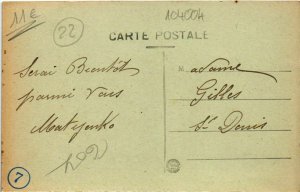 11€
22
104504
CARTE POSTALE
Serai Bientôt
parmi Vous
M adame
Gilles
St Denis
7